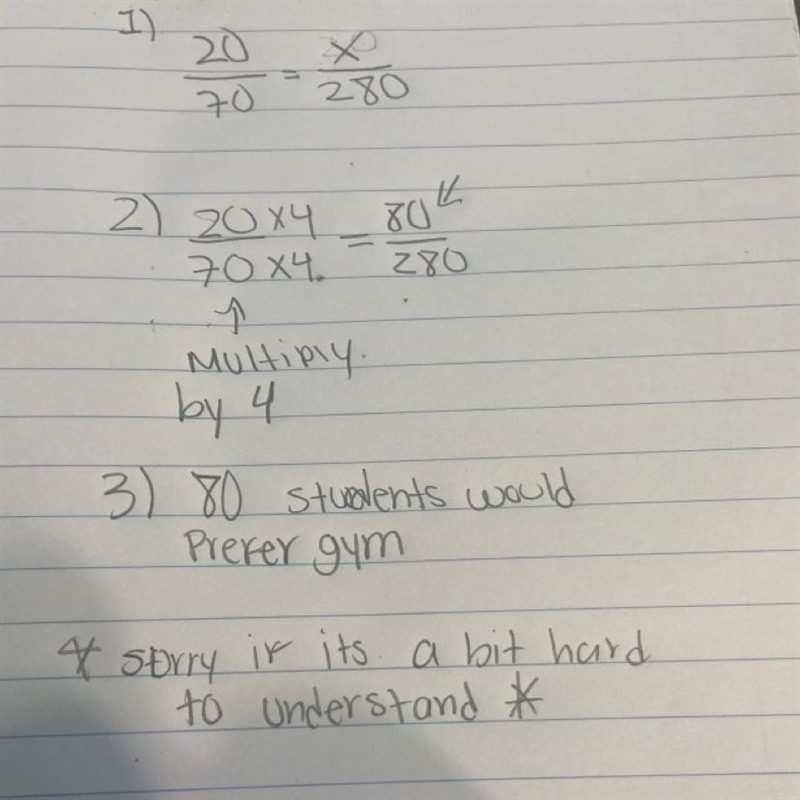 1)
20/70 = x/280
2) 20x4/70x4. = 80/280
↑
Multiply.
by 4
3) 80 students would
Prefer gym
* sorry if its a bit hard
to understand *